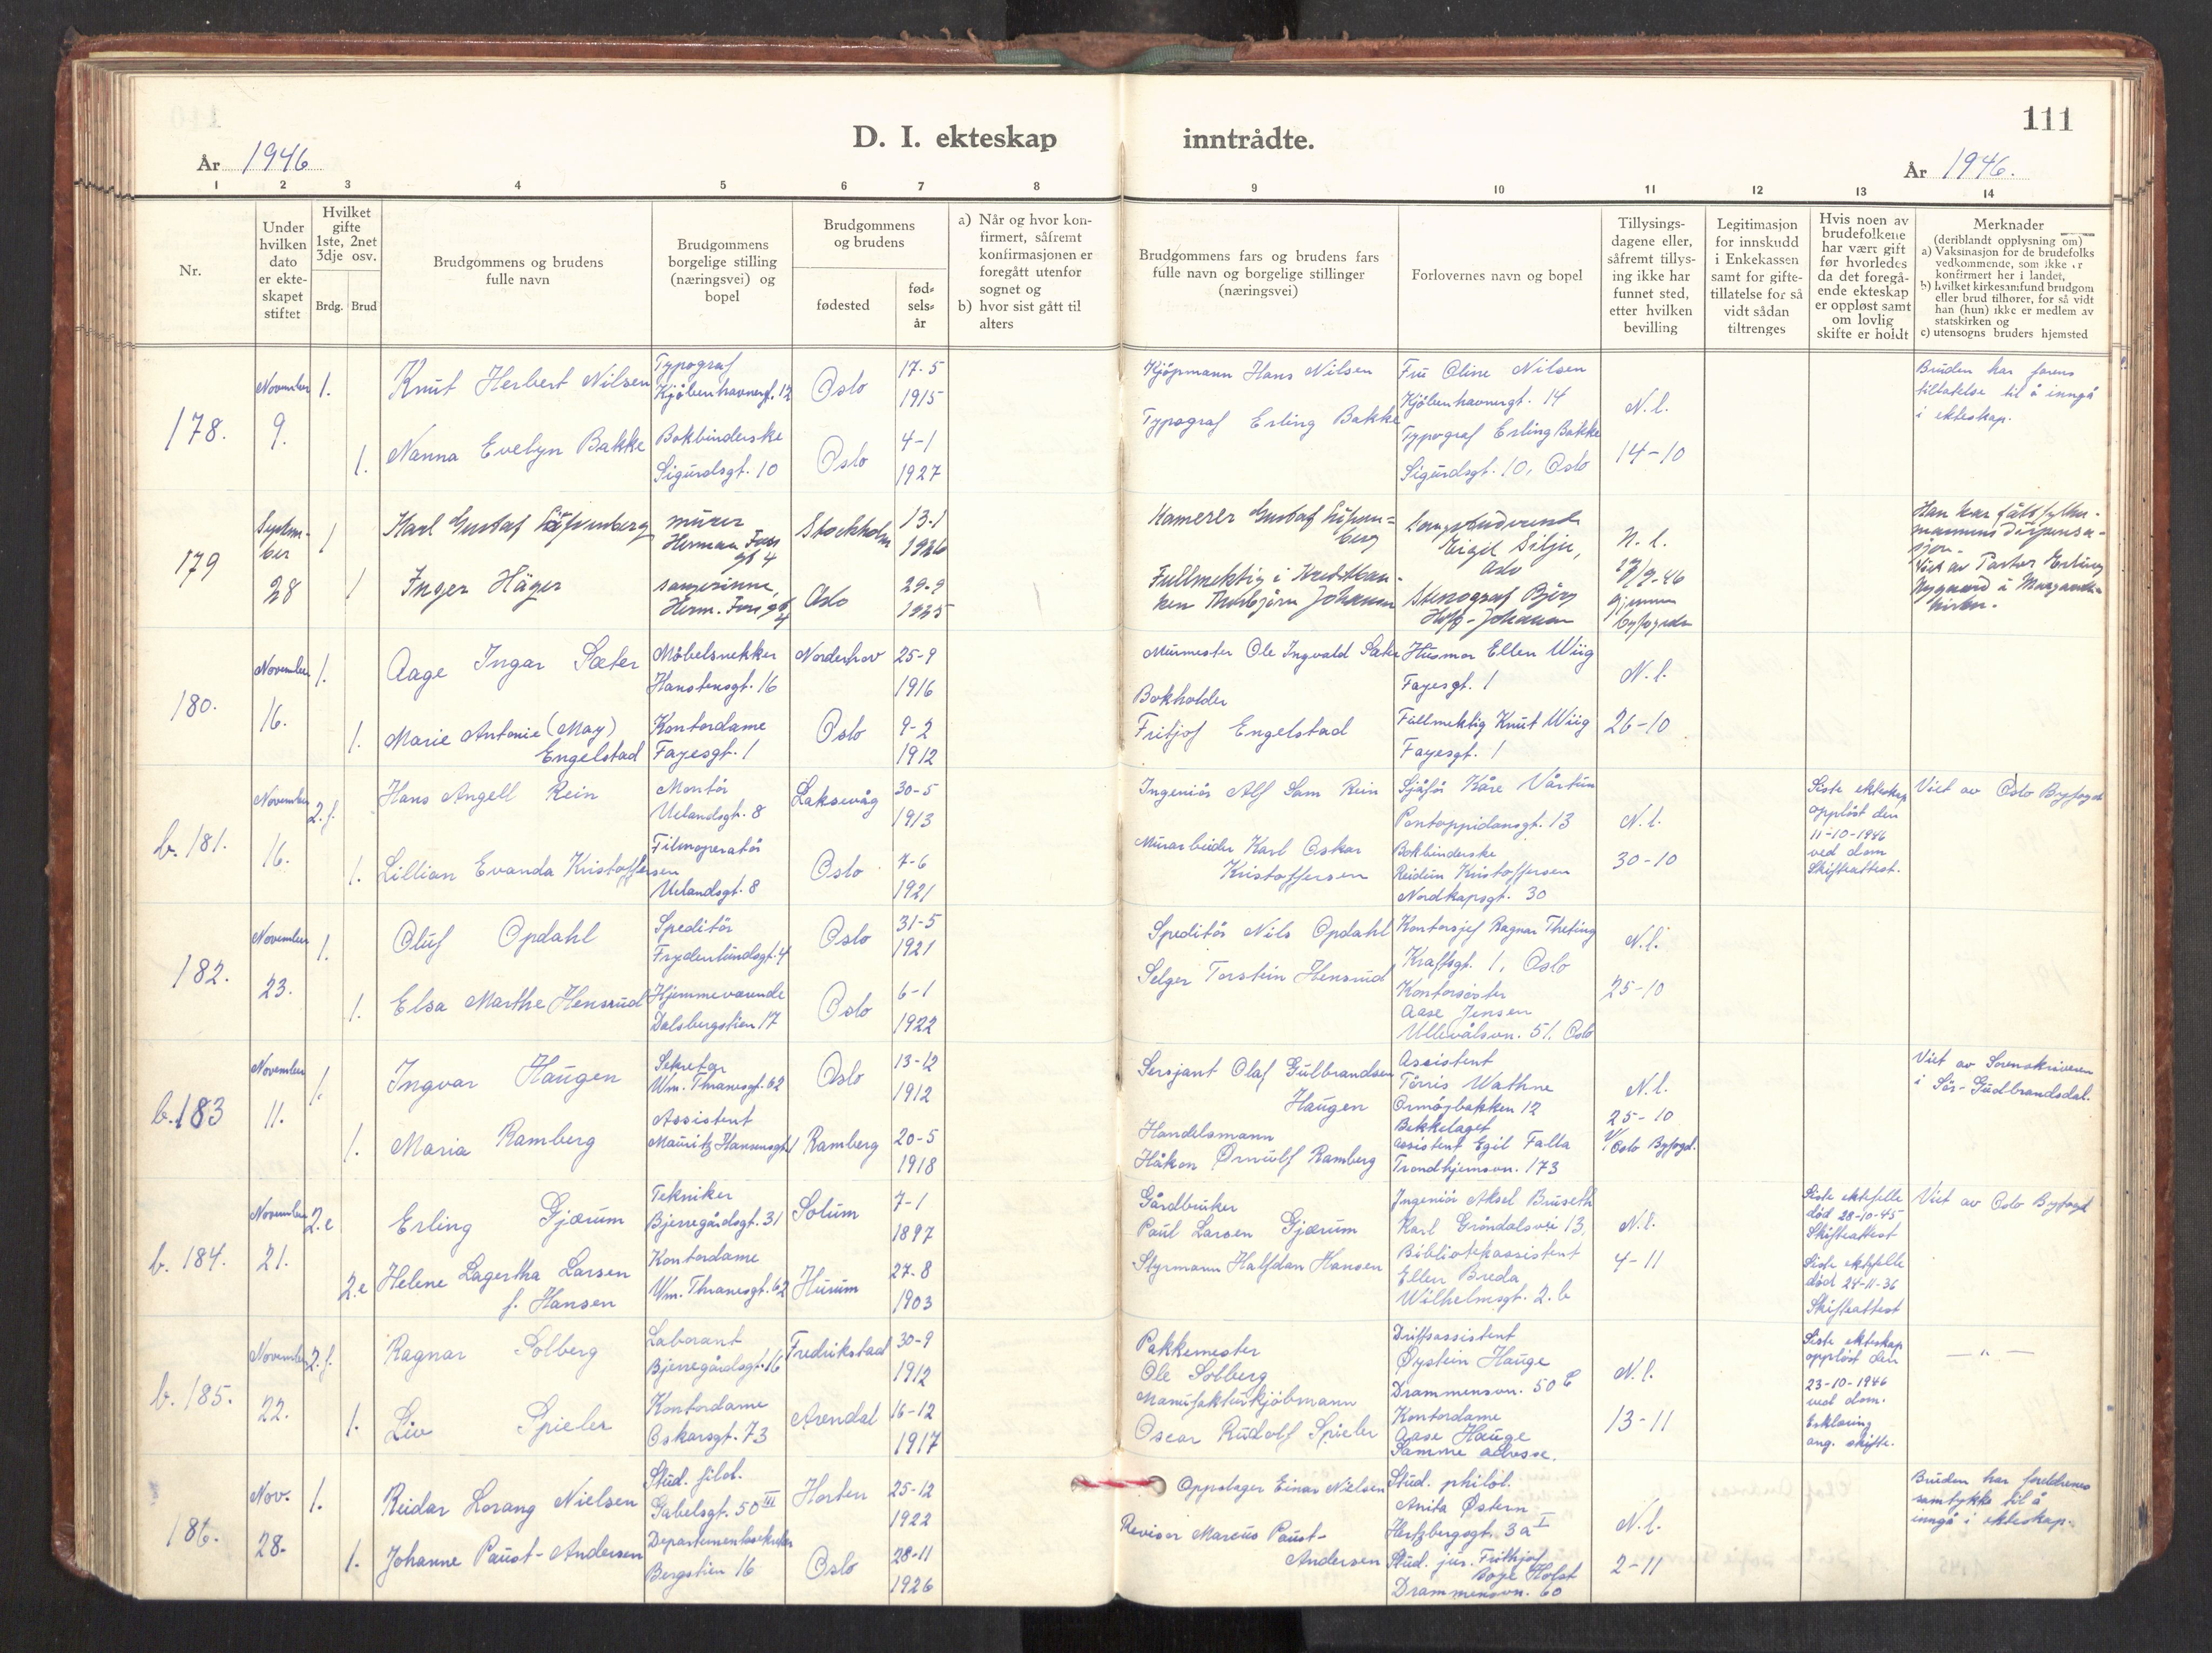 111
D. I. ekteskap inntrådte.
År 1946
År 1946.
1 2 3 4 5 6 7 8 9 10 11 12 13 14
Nr.
Under
hvilken
dato
er ekte-
skapet
stiftet
Hvilket
gifte
1ste, 2net
3dje osv.
Brdg.
Brud
Brudgommens og brudens
fulle navn
Brudgommens
borgelige stilling
(næringsvei) og
bopel
Brudgommens
og brudens
fødested
fød-
sels-
år
a) Når og hvor kon-
firmert, såfremt
konfirmasjonen er
foregått utenfor
sognet og
b) hvor sist gått til
alters
Brudgommens fars og brudens fars
fulle navn og borgelige stillinger
(næringsvei)
Forlovernes navn og bopel
Tillysings-
dagene eller,
såfremt tillys-
ing ikke har
funnet sted,
etter hvilken
bevilling
Legitimasjon
for innskudd
i Enkekassen
samt for gifte-
tillatelse for så
vidt sådan
tiltrenges
Hvis noen av
brudefolkene
har vært gift
før hvorledes
da det foregå-
ende ekteskap
er oppløst samt
om lovlig
skifte er holdt
Merknader
(deriblandt opplysning om)
a) Vaksinasjon for de brudefolks
vedkommende, som ikke er
konfirmert her i landet,
b) hvilket kirkesamfund brudgom
eller brud tilhører, for så vidt
han (hun) ikke er medlem av
statskirken og
c) utensogns bruders hjemsted
178.
November
9.
1.
Knut Herbert Nilsen
Typograf
Kjøbenhavnergt. 12
Oslo
17-5
1915
1.
Nanna Evelyn Bakke
Bokbinderske
Sigurdsgt. 10
Oslo
4-1
1927
Kjøpmann Hans Nilsen
Typograf Erling Bakke
Fru Oline Nilsen
Kjøbenhavnergt. 14
Typograf Erling Bakke
Sigurdsgt. 10, Oslo
N.l.
14-10
Bruden har farens
tillatelse til å inngå
i ekteskap.
179
Septem-
ber
28
1
Karl Gustaf
murer
Herman Foss
gt 4
Stockholm
13-1
1926
1
Inger Häger
sangerinne,
Herm. Foss gt
4
Oslo
29-9
1925
Kamerer Gustaf
Fullmektig i Kreditban-
ken Thorbjörn Johansen
Eigil Silju,
Oslo
Stenograf Björg
Johansen
N. l.
/9-46
gjennom
byfogden
Han har fått fylkes-
mannens dispensa-
sjon.
Viet av Pastor Erling
Nygaard i Margareta-
kirken.
180.
November
16.
1.
Aage Ingar Sæter
Møbelsnekker
Hanstensgt. 16
Norderhov
25-9
1916
1.
Marie Antonie (May)
Engelstad
Kontordame
Fayesgt. 1
Oslo
9-2
1912
Murmester Ole Ingvald Sæter
Bokholder
Fritjof Engelstad
Husmor Ellen Wiig
Fayesgt. 1
Fullmektig Knut Wiig
Fayesgt. 1
N.l.
26-10
b. 181.
November
16.
2.f.
Hans Angell Rein
Montør
Uelandsgt. 8
Laksevåg
30-5
1913
1.
Lillian Evanda Kristoffersen
Filmoperatør
Uelandsgt. 8
Oslo
7-6
1921
Ingeniør Alf Sam Rein
Murarbeider Karl Oskar
Kristoffersen
Sjåfør Kåre Vårtun
Pontoppidansgt. 13
Bokbinderske
Reidun Kristoffersen
Nordkapsgt. 30
N.l.
30-10
Siste ekteskap
oppløst den
11-10-1946
ved dom
Skifteattest.
Viet av Oslo Byfogd
182.
November
23.
1.
Oluf Opdahl
Speditør
Frydenlundsgt. 4
Oslo
31-5
1921
1.
Elsa Marthe Hensrud
Hjemmeværende
Dalsbergstien 17
Oslo
6-1
1922
Speditør Nils Opdahl
Selger Torstein Hensrud
Kontorsjef Ragnar Theting
Kraftsgt. 1, Oslo
Kontorsøster
Aase Jensen
Ullevålsvn. 51. Oslo
N.l.
25-10
b.183
November
11.
1.
Ingvar Haugen
Sekretær
Wm. Thranesgt. 62
Oslo
13-12
1912
1.
Maria Ramberg
Assistent
Mauritz Hansensgt. 1
Ramberg
20-5
1918
Sersjant Olaf Gulbrandsen
Haugen
Handelsmann
Håkon Ørnulf Ramberg
Assistent
Tørris Wathne
Ormøybakken 12
Bekkelaget
assistent Egil Falla
Trondhjemsvn. 173
N.l.
25-10
v/ Oslo Byfogd.
Viet av Sorenskriveren
i Sør-Gudbrandsdal.
b. 184.
November
21.
2.e
Erling Gjærum
Tekniker
Bjerregårdsgt. 31
Solum
7-1
1897
2.e
Helene Lagertha Larsen
f. Hansen
Kontordame
Wm. Thranesgt. 62
Hurum
27-8
1903
Gårdbruker
Paul Larsen Gjærum
Styrmann Halfdan Hansen
Ingeniør Aksel Bruseth
Karl Grøndalsvei 13,
Bibliotekassistent
Ellen Breda
Wilhelmsgt. 2.b
N.l.
4-11
Siste ektefelle
død 28-10-45
Skifteattest
Siste ektefelle
død 24-11-36
Skifteattest
Viet av Oslo Byfogd
b. 185.
November
22.
2.f.
Ragnar Solberg
Laborant
Bjerregårdsgt. 16
Fredrikstad
30-9
1912
1.
Liv Spieler
Kontordame
Oskarsgt. 73
Arendal
16-12
1917
Pakkemester
Ole Solberg
Manufakturkjøbmann
Oscar Rudolf Spieler
Driftsassistent
Øystein Hauge
Drammensvn. 50 E
Kontordame
Aase Hauge
Samme adresse.
N.l.
13-11
Siste ekteskap
oppløst den
23-10-1946
ved dom.
Erklæring
ang. skifte.
— " —
186.
Nov.
28.
1.
Reidar Lorang Nielsen
Stud. filol.
Gabelsgt. 50 III
Horten
25-12
1922
1.
Johanne Paust-Andersen
Departementssekretær
Bergstien 16
Oslo
28-11
1926
Oppslager Einar Nielsen
Revisor Marcus Paust-
Andersen
Stud. philol.
Anita Østern
Hertzbergsgt. 3a I
Stud. jur. Frithjof
Boye Holst
Drammensvn. 60
N.l.
2-11
Bruden har foreldrenes
samtykke til å
inngå i ekteskap.